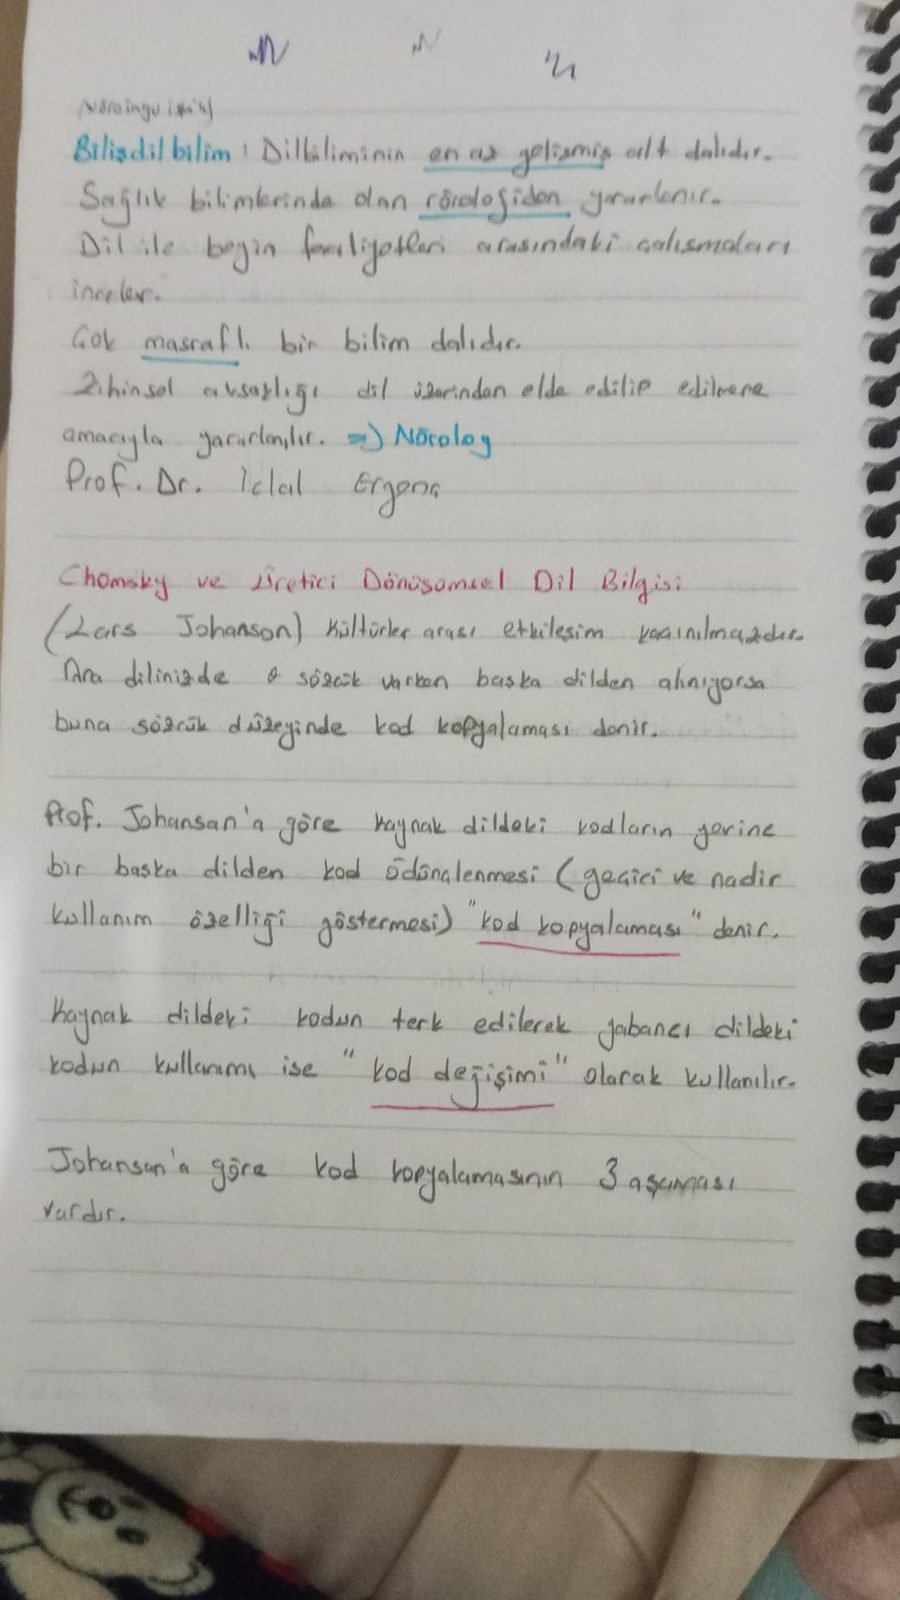 Bilişdilbilim: Dilbiliminin en az gelişmiş alt dalıdır.
Sağlık bilimlerinde olan nörolojiden yararlanır.
Dil ile beyin faaliyetleri arasındaki çalışmaları
inceler.
Çok masraflı bir bilim dalıdır.
Zihinsel aksaklığı dil üzerinden elde edilip edilmeme
amacıyla yararlanılır. => Nörolog
Prof. Dr. İclal Ergenç
Chomsky ve Üretici Dönüşümsel Dil Bilgisi
(Lars Johanson) Kültürler arası etkileşim kaçınılmazdır.
Ana dilinizde o sözcük varken başka dilden alınıyorsa
buna sözcük düzeyinde kod kopyalaması denir.
Prof. Johansan'a göre kaynak dildeki kodların yerine
bir başka dilden kod ödünçlenmesi (geçici ve nadir
kullanım özelliği göstermesi) "kod kopyalaması" denir.
Kaynak dildeki kodun terk edilerek yabancı dildeki
kodun kullanımı ise "kod değişimi" olarak kullanılır.
Johansan'a göre kod kopyalamasının 3 aşaması
vardır.